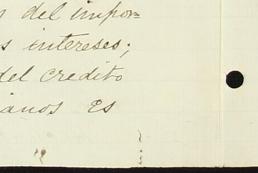 del impor=
s intereses;
del credito
anos es